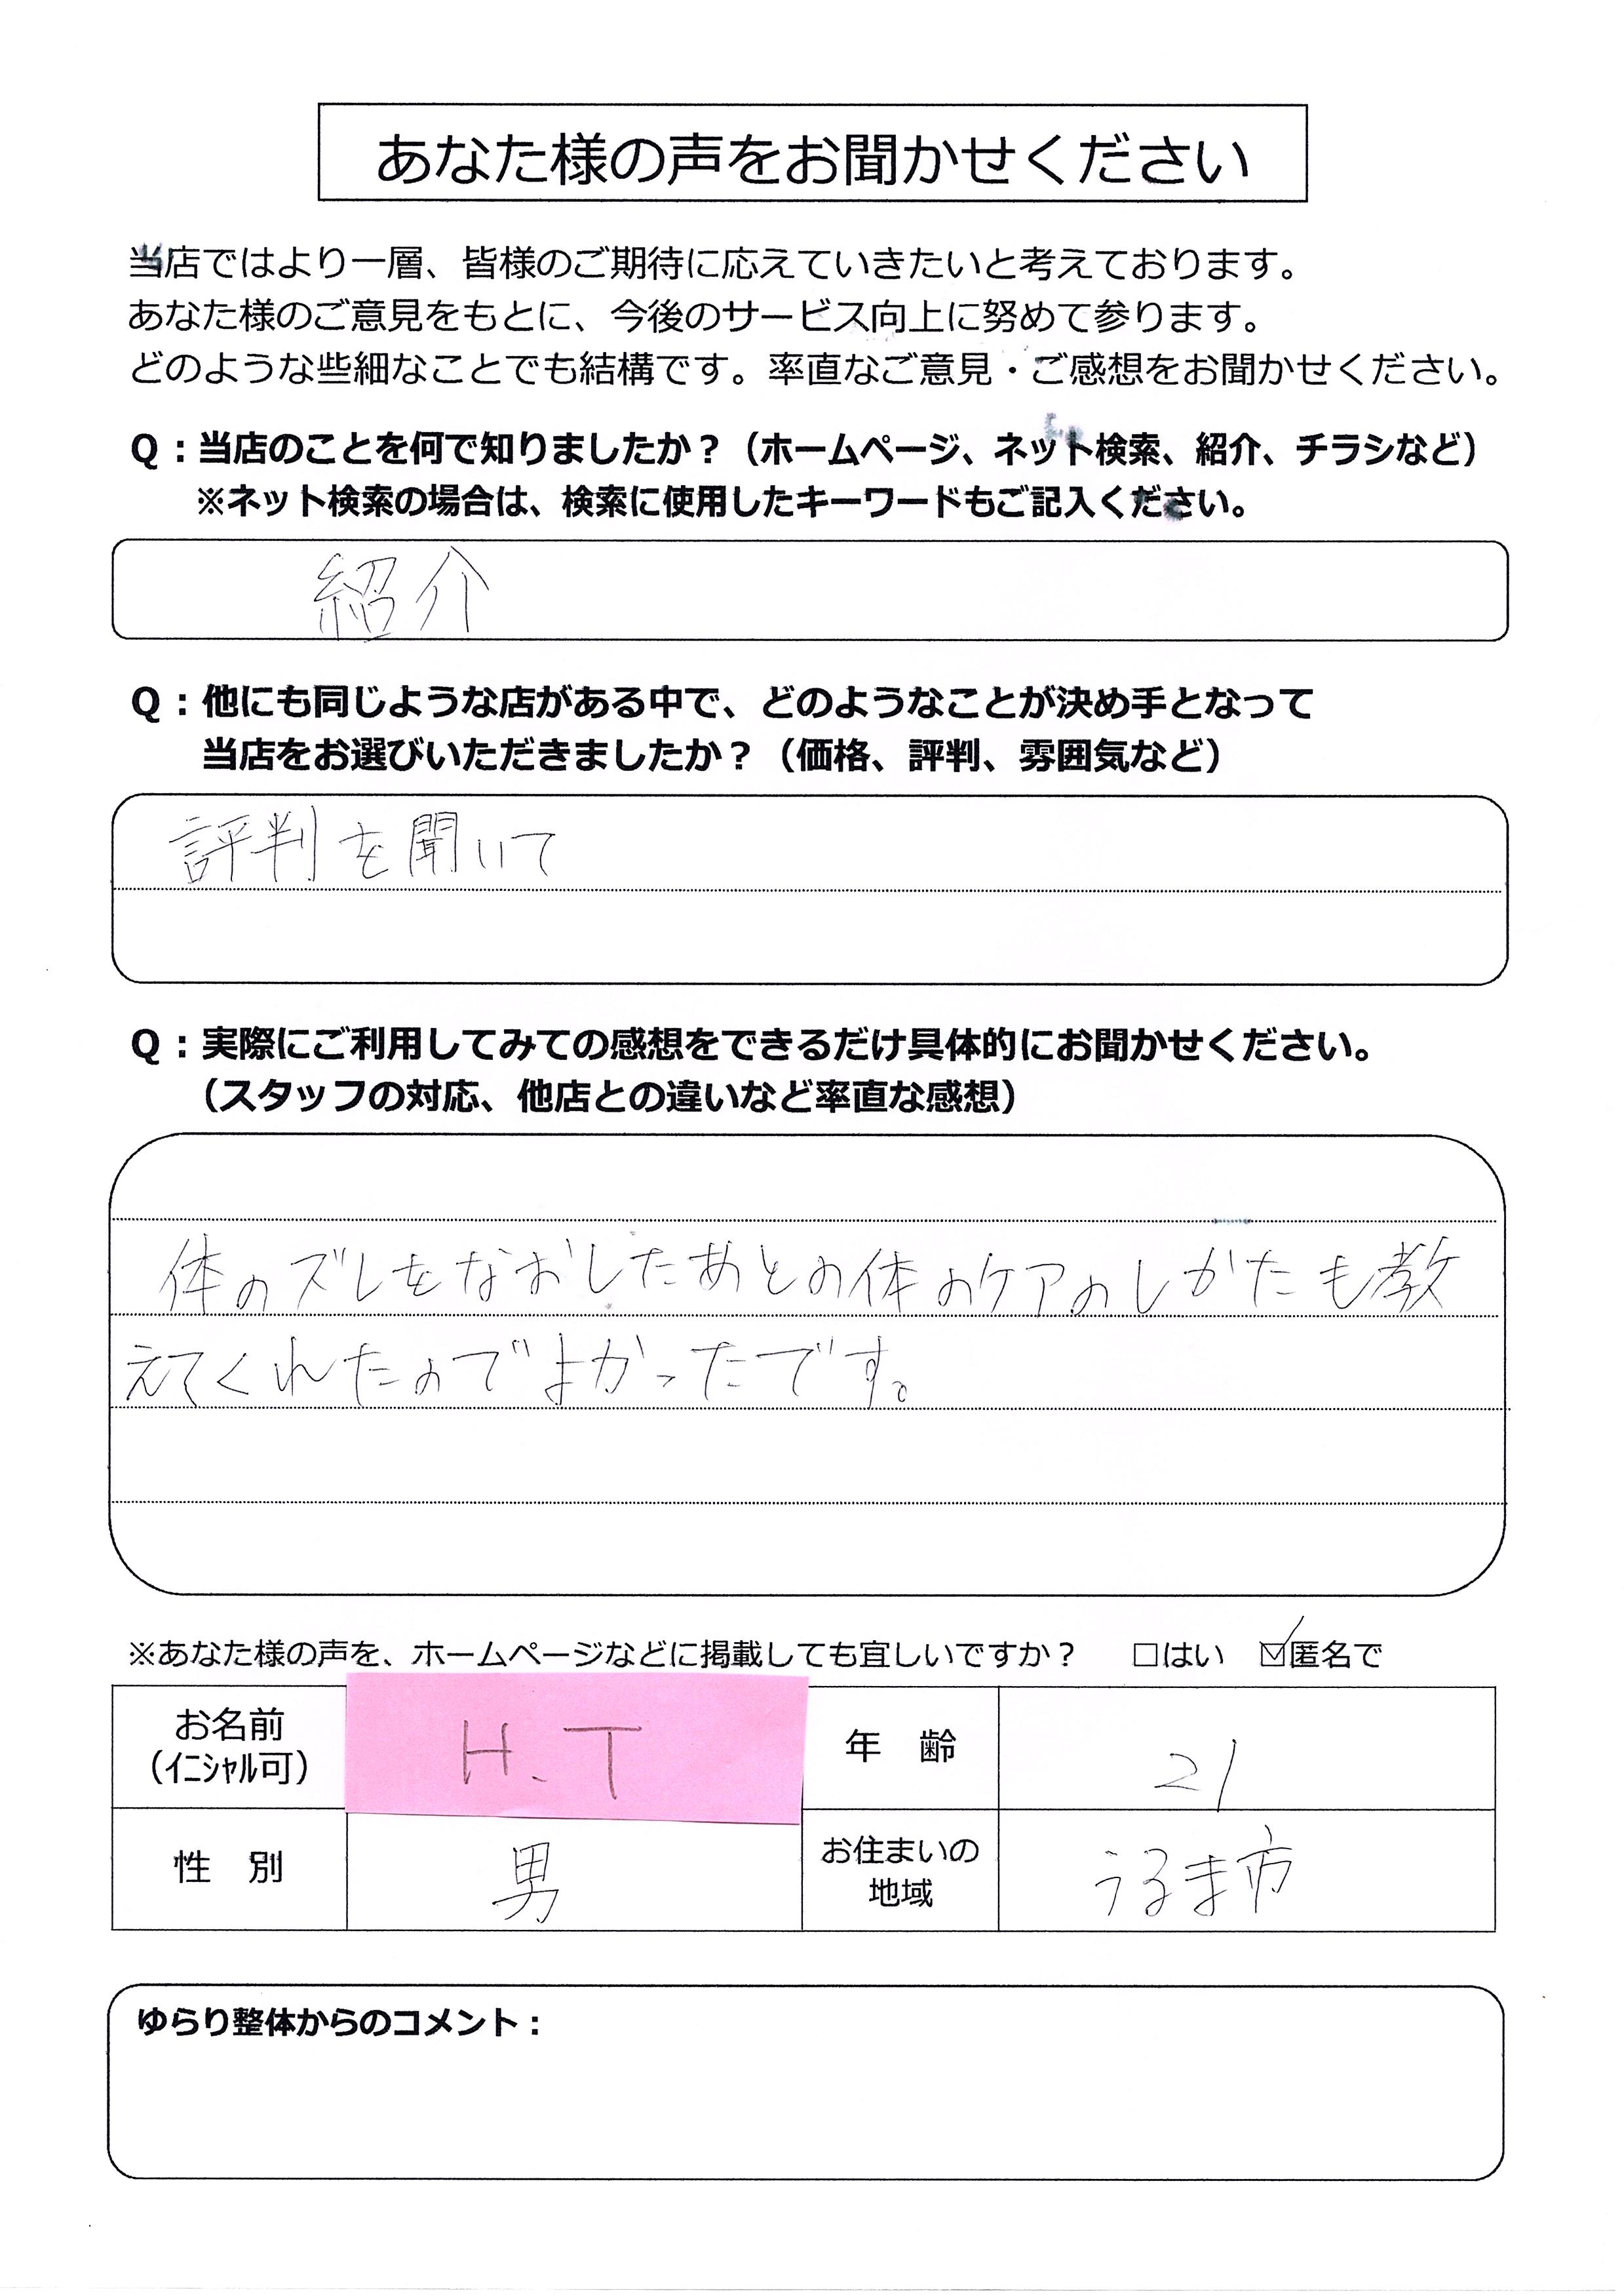 あなた様の声をお聞かせください
当店ではより一層、皆様のご期待に応えていきたいと考えております。
あなた様のご意見をもとに、今後のサービス向上に努めて参ります。
どのような些細なことでも結構です。率直なご意見・ご感想をお聞かせください。
Q：当店のことを何で知りましたか？（ホームページ、ネット検索、紹介、チラシなど）
※ネット検索の場合は、検索に使用したキーワードもご記入ください。
紹介
Q：他にも同じような店がある中で、どのようなことが決め手となって
当店をお選びいただきましたか？（価格、評判、雰囲気など）
評判を聞いて
Q：実際にご利用してみての感想をできるだけ具体的にお聞かせください。
（スタッフの対応、他店との違いなど率直な感想）
体のズレをなおしたあとの体のケアのしかたも教
えてくれたのでよかったです。
※あなた様の声を、ホームページなどに掲載しても宜しいですか？ □はい ☑匿名で
お名前 H.T 年 齢 21
（ｲﾆｼｬﾙ可）
性 別 男 お住まいの うるま市
地域
ゆらり整体からのコメント：